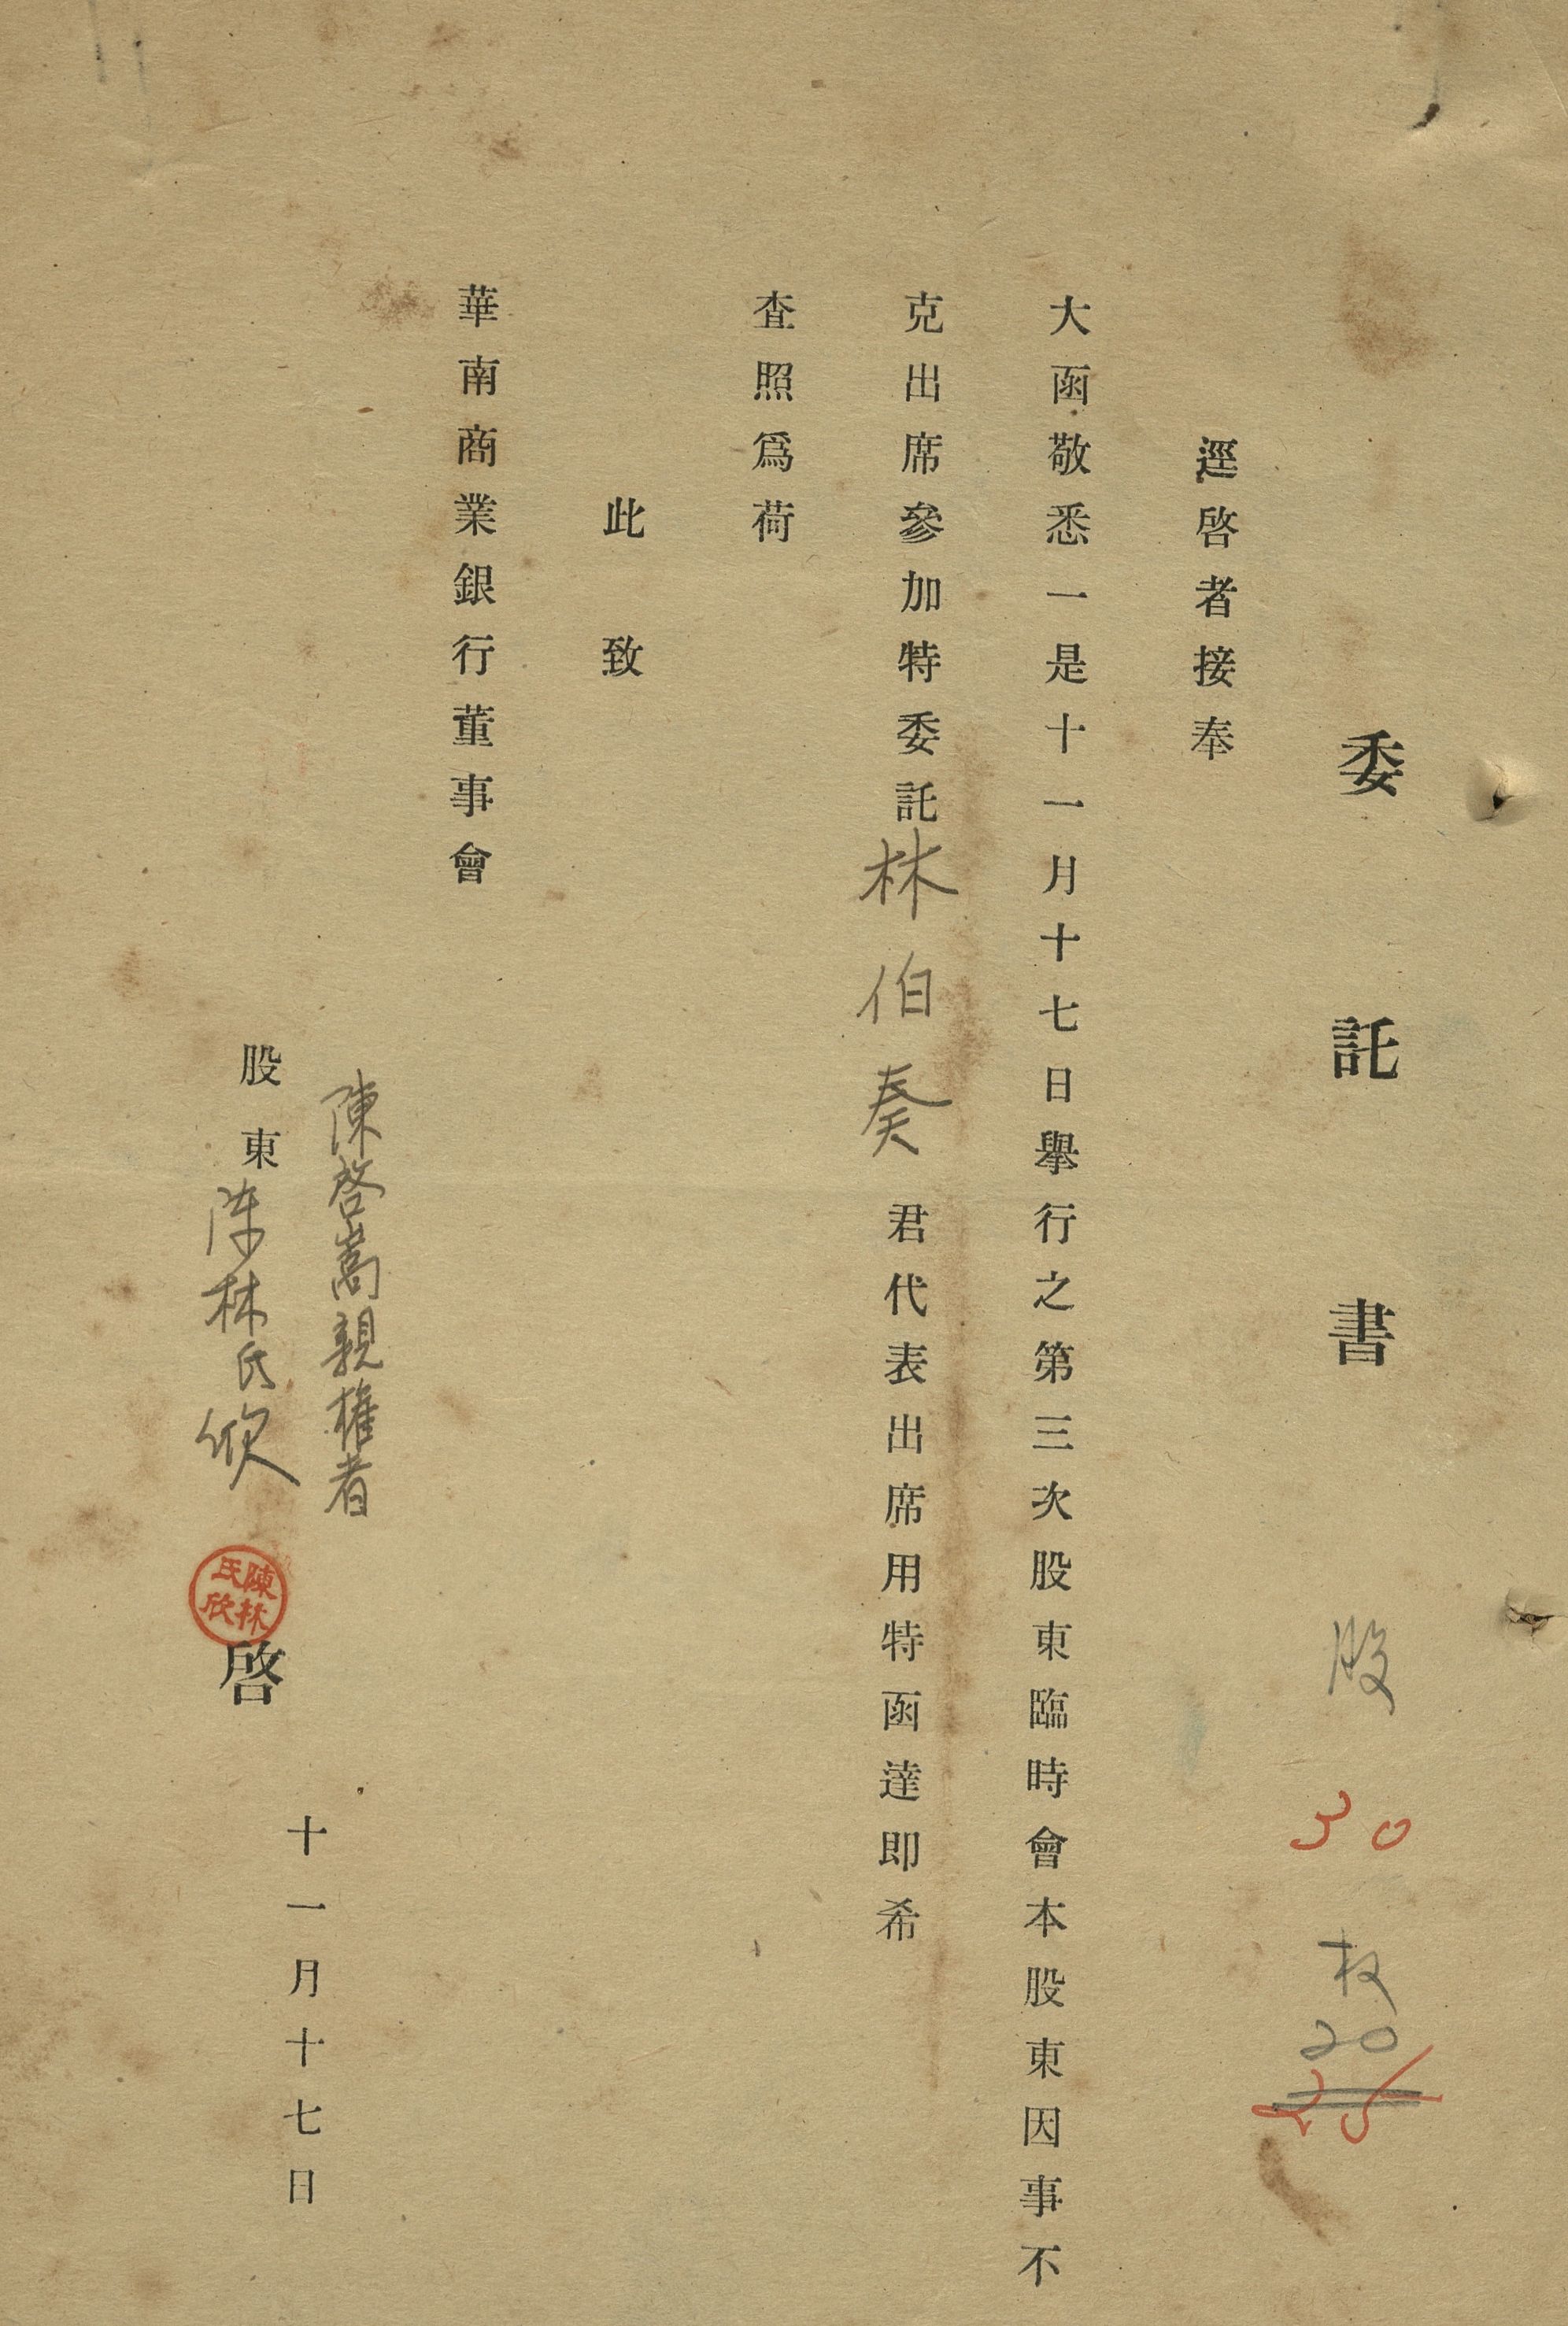 委託書
股
30
枚
20
25
逕啓者接奉
大函敬悉一是十一月十七日舉行之第三次股東臨時會本股東因事不
克出席參加特委託林伯奏君代表出席用特函達即希
査照爲荷
此致
華南商業銀行董事會
陳啓嵩親權者
股東陳林氏欣啓
陳林氏欣
十一月十七日